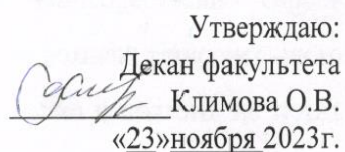 Утверждаю:
Декан факультета
Климова О.В.
«23»ноября 2023г.